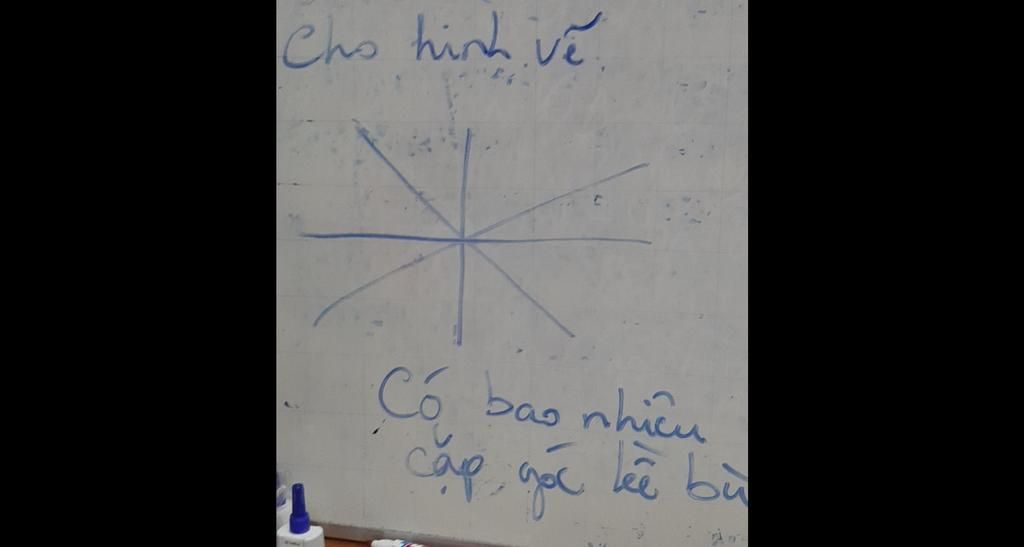 Cho hình vẽ.
Có bao nhiêu
cặp góc kề bù